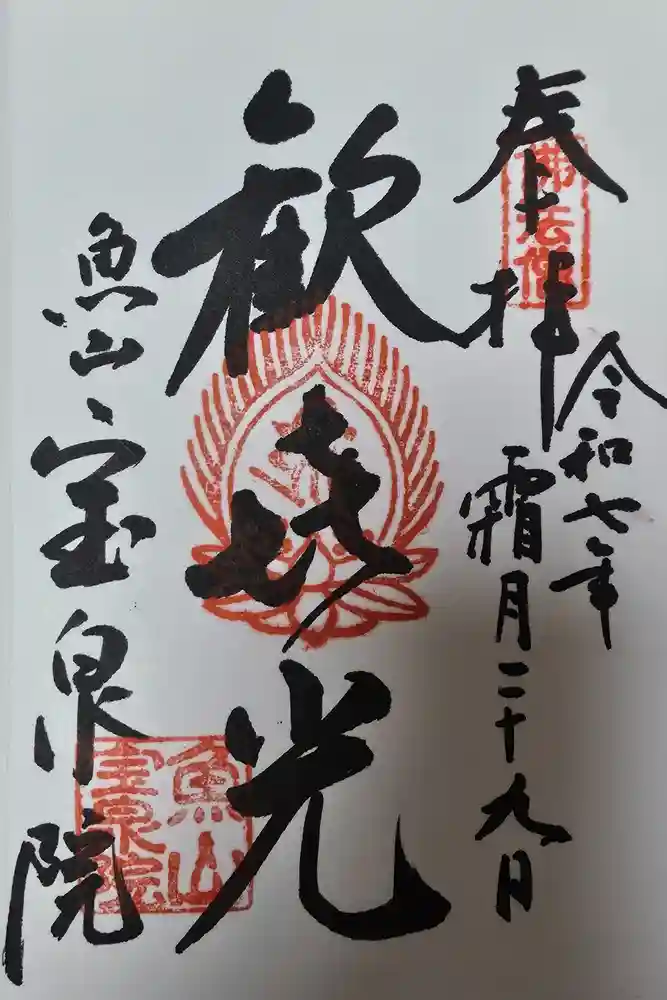 奉拝
佛法僧
令和七年
霜月二十九日
歓㐂光
魚山宝泉院
魚山
宝泉院